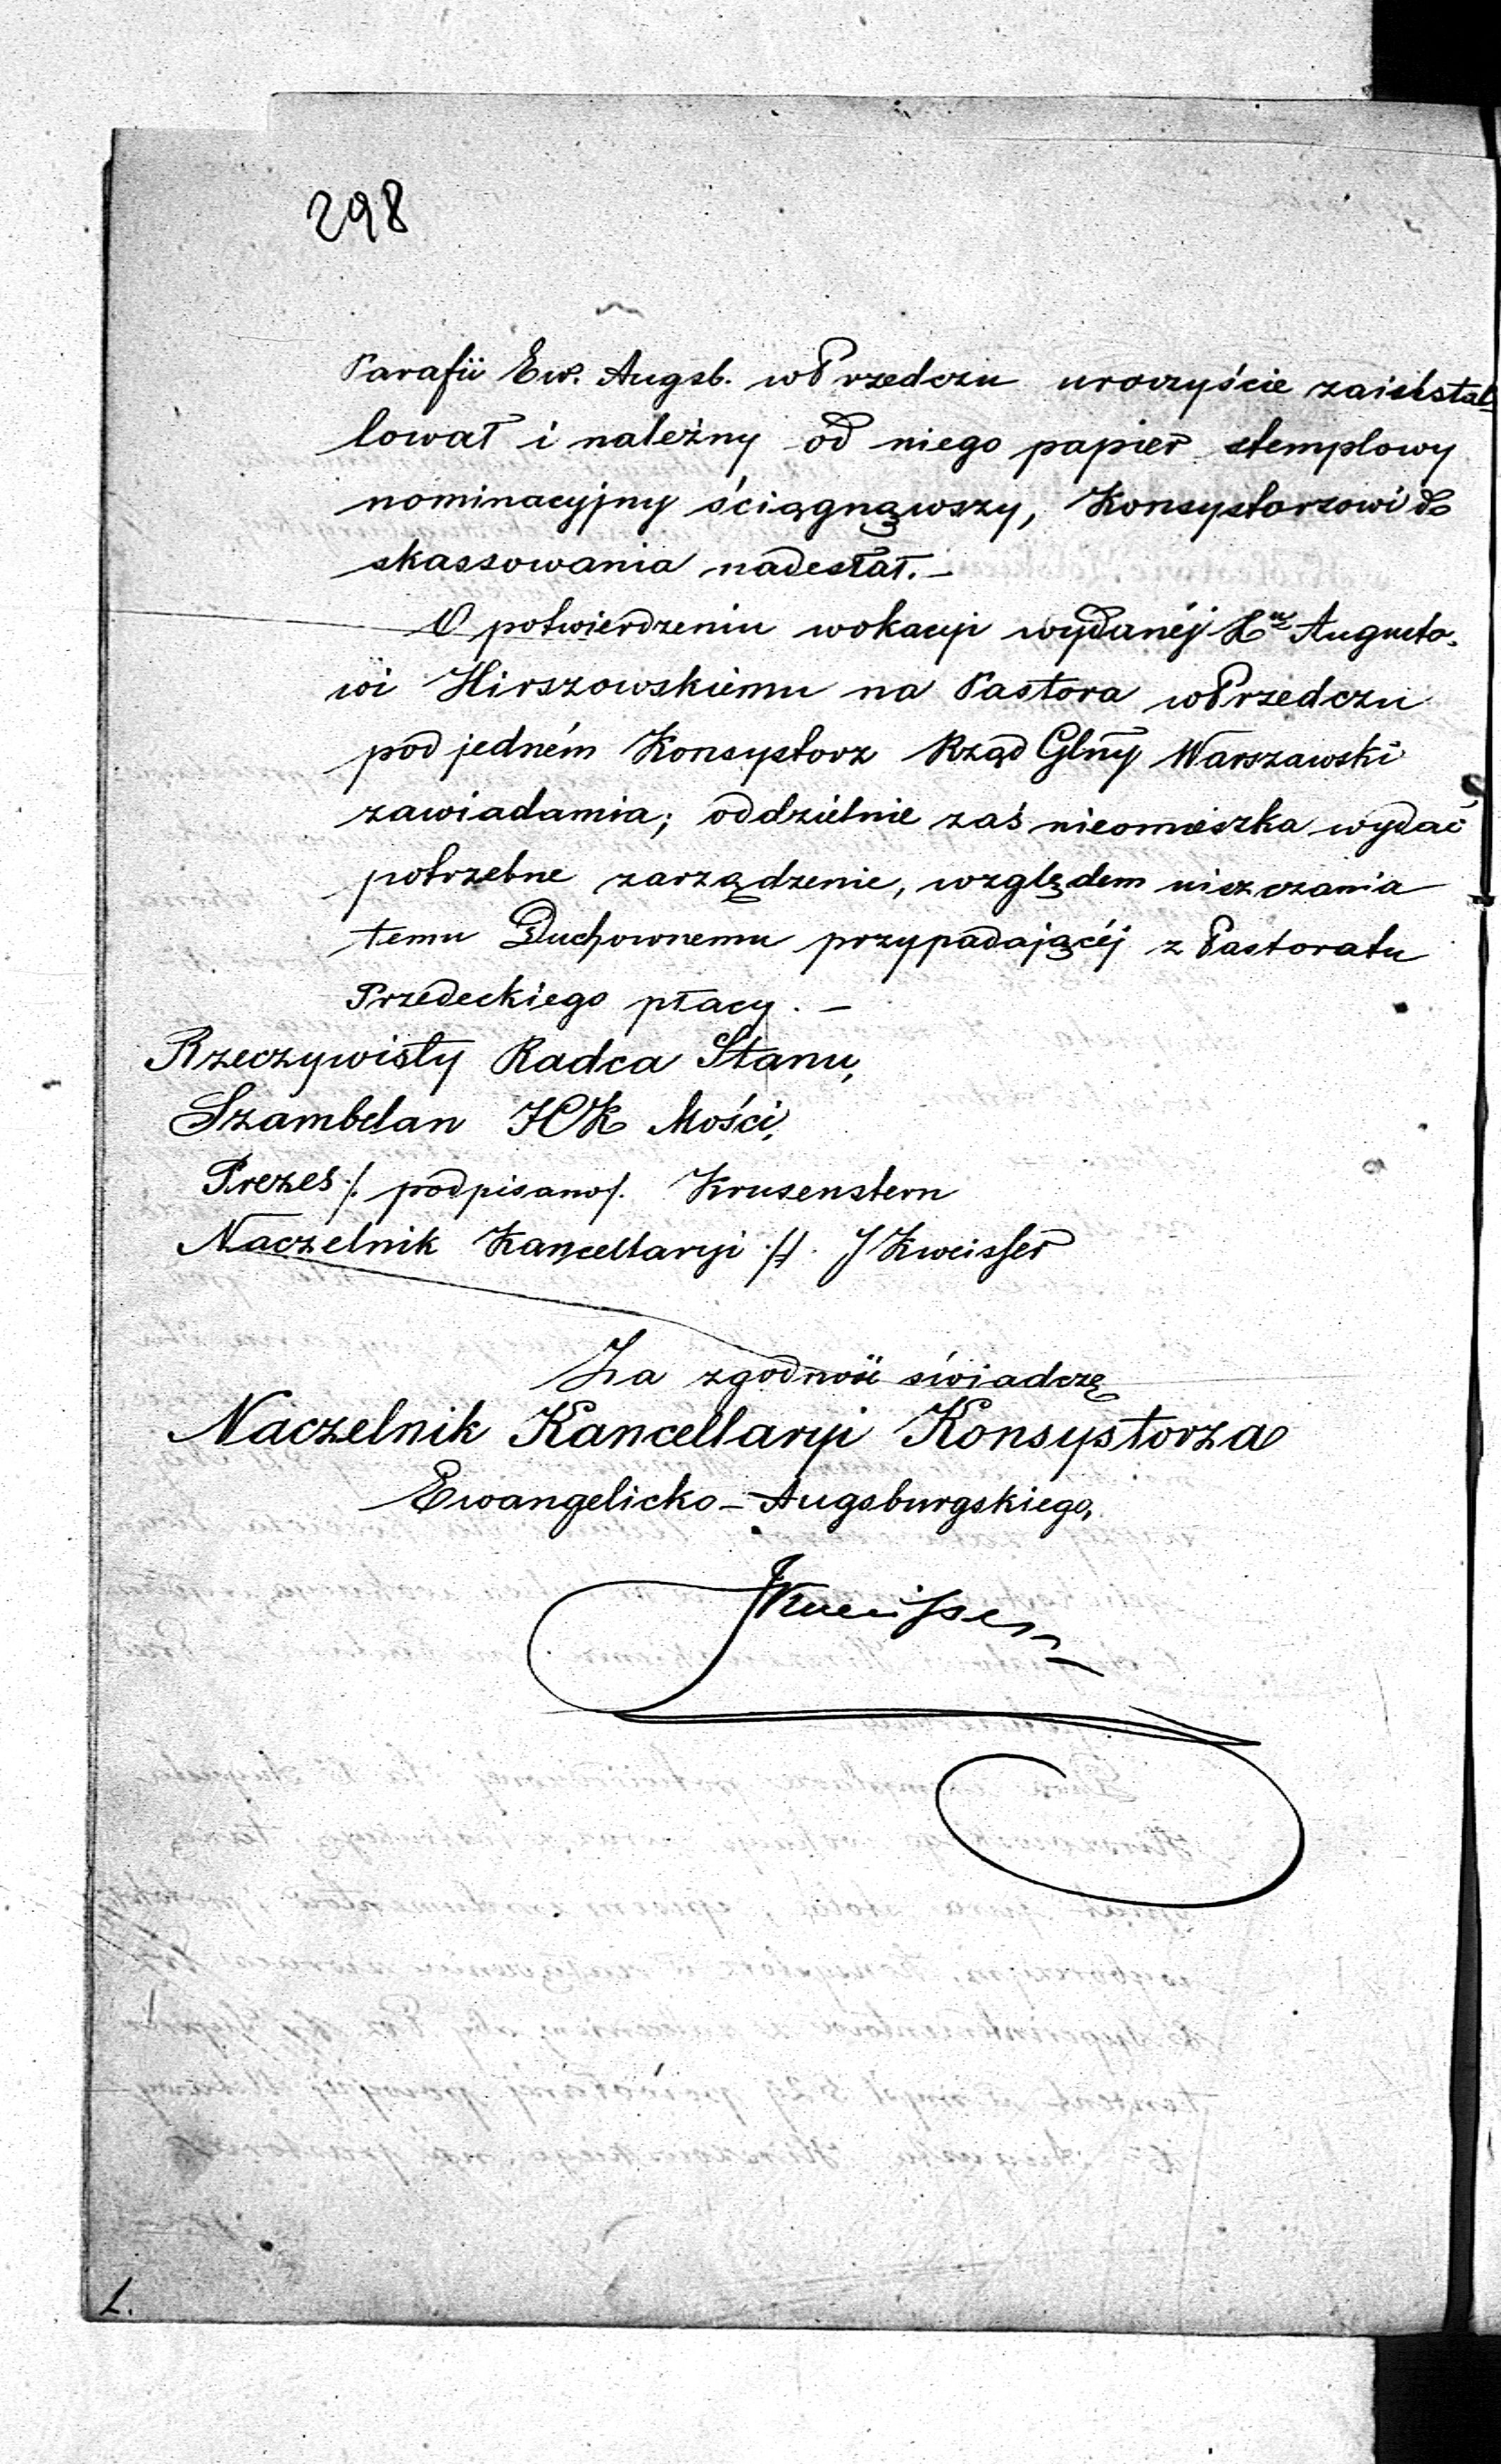 298
Parafii Ew. Augsb. w Przedczu uroczyście zainstal-
lował i należny od niego papier stemplowy
nominacyjny ściągnąwszy, Konsystorzowi do
skassowania nadesłał. —
O potwierdzeniu wokacyi wydanéj Xdzu Augusto-
wi Hirszowskiemu na Pastora w Przedczu
pod jedném Konsystorz Rząd Glny Warszawski
zawiadamia; oddzielnie zaś nieomieszka wydać
potrzebne zarządzenie, względem uiszczania
temu Duchownemu przypadającéj z Pastoratu
Przedeckiego płacy. —
Rzeczywisty Radca Stanu,
Szambelan JCK Mości,
Prezes /. podpisano/. Krusenstern
Naczelnik Kancellaryi ././. J Kweisser
Za zgodność świadczę
Naczelnik Kancellaryi Konsystorza
Ewangelicko-Augsburgskiego,
JKweisser
L.